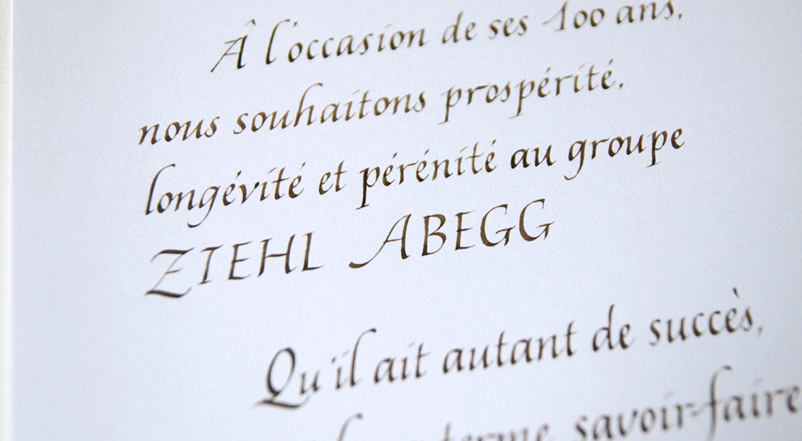 Â l'occasion de ses 100 ans,
nous souhaitons prospérité,
longévité et pérénité au groupe
ZIEHL ABEGG
Qu'il ait autant de succès,
terme savoir-faire